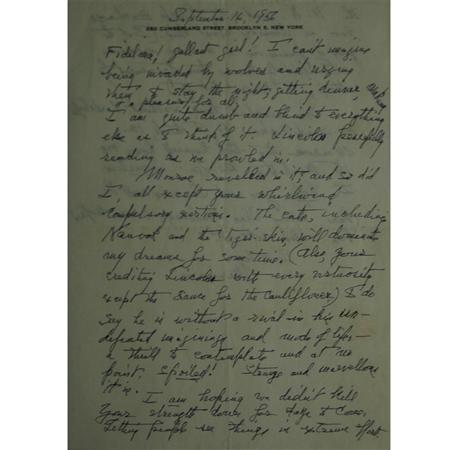 September 16, 1956
260 CUMBERLAND STREET, BROOKLYN 5, NEW YORK
Fidelma, gallant girl! I can't imagine
being invaded by wolves and urging
them to stay the night, getting dinner,
to a pleasure for all.
I am quite dumb and blind to everything
else as I think of it. Lincoln peacefully
reading as we prowled in.
Monroe revelled in it, and so did
I, all except your whirlwind
compulsory exertions. The cats, including
and the tiger skin, will dominate
my dreams for some time. (Also your
crediting Lincoln with every virtuosity
except the sauce for the cauliflower) I do
say he is without a rival in his un-
defeated imaginings and mode of life –
a thrill to contemplate and at no
point, spoiled! Strange and marvellous
it is.
I am hoping we didn't kill
your strength down for days to come,
letting people see things in extreme effort